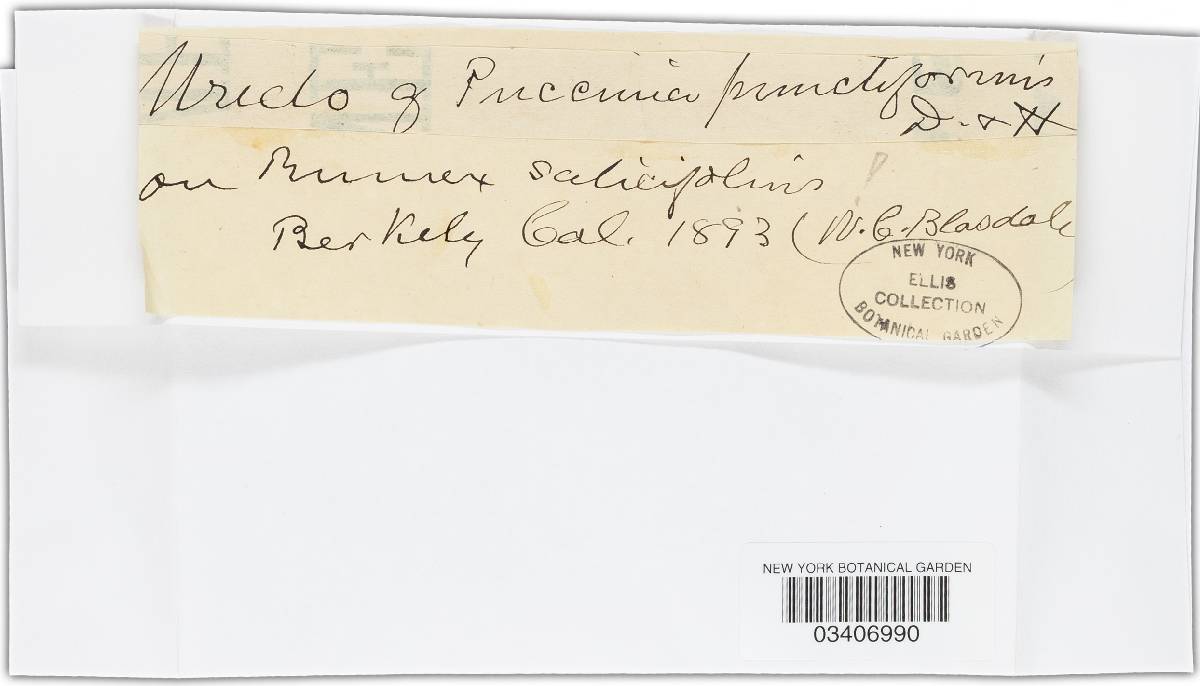 Uredo of Puccinia punctiformis
D. & H
on Rumex salicifolius
Berkely Cal. 1893 (W. C. Blasdale
NEW YORK
ELLIS
COLLECTION
BOTANICAL GARDEN
NEW YORK BOTANICAL GARDEN
03406990